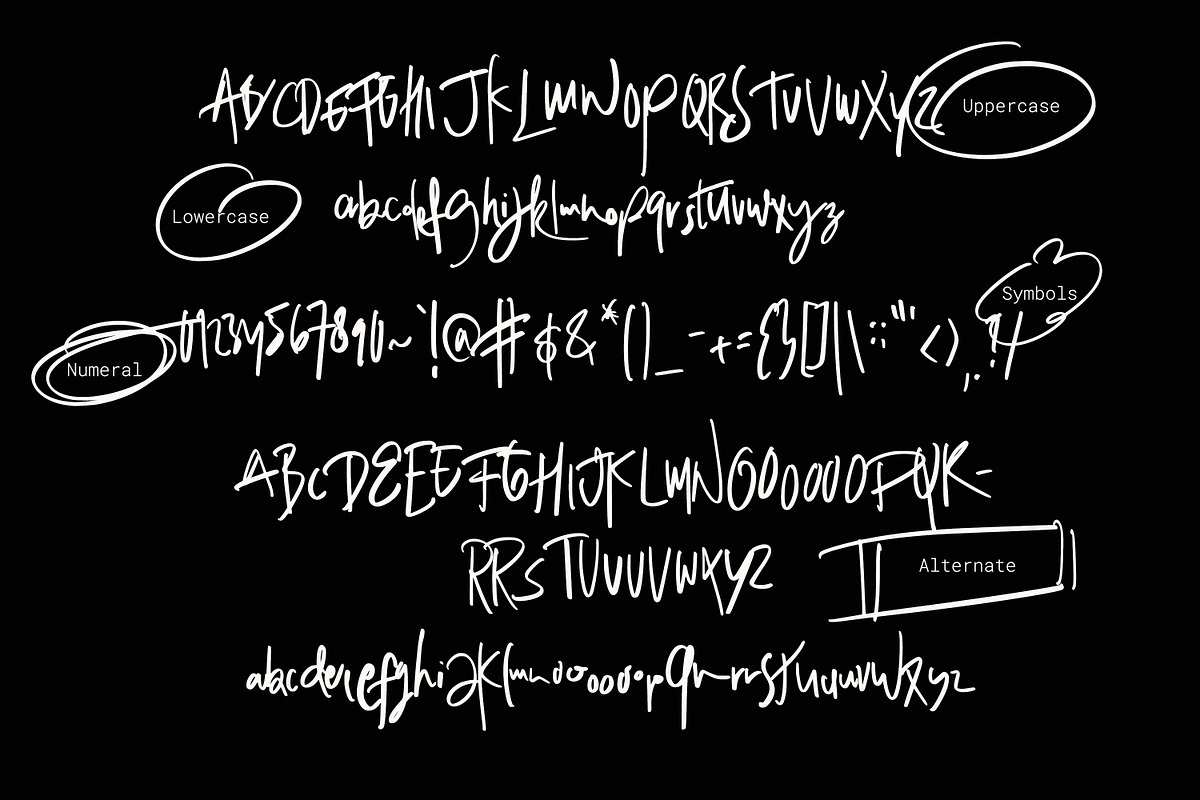 ABCDEFGHIJKLMNOPQRSTUVWXYZ Uppercase
Lowercase abcdefghijklmnopqrstuvwxyz
Symbols
Numeral 01234567890~`!@#$&*()_-+={}[]|\:;"'<>,.?/
ABCDEEEFGHIJKLMNOOOOOOPQR-
RRSTUUUVWXYZ
Alternate
abcdeeefghijklmnooooooopqrrrstuuuvwxyz